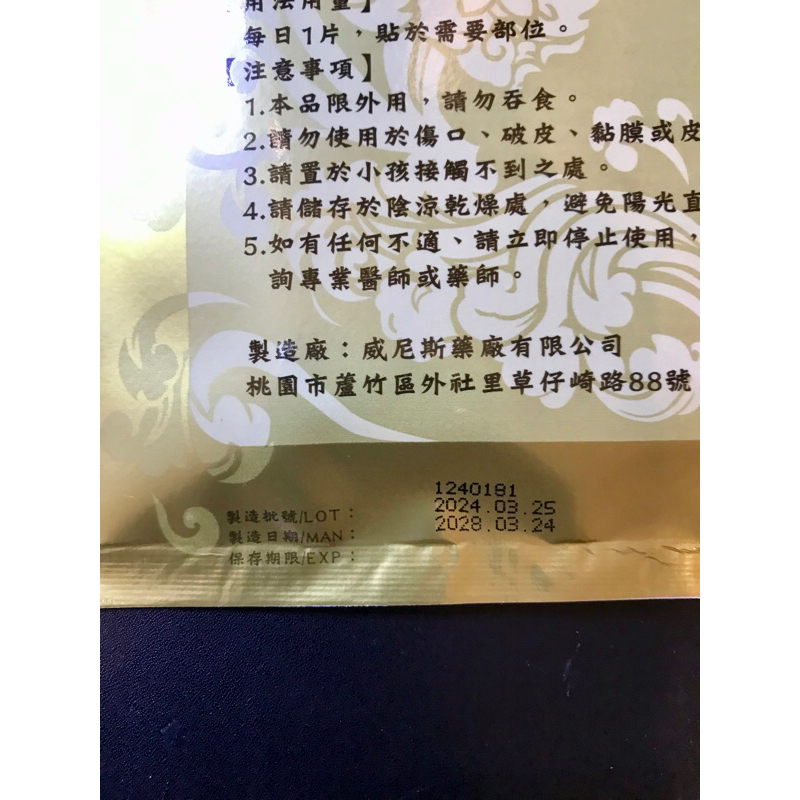 用法用量】
每日1片，貼於需要部位。
【注意事項】
1.本品限外用，請勿吞食。
2.請勿使用於傷口、破皮、黏膜或皮
3.請置於小孩接觸不到之處。
4.請儲存於陰涼乾燥處，避免陽光直
5.如有任何不適、請立即停止使用，
詢專業醫師或藥師。
製造廠：威尼斯藥廠有限公司
桃園市蘆竹區外社里草仔崎路88號
製造批號/LOT： 1240181
製造日期/MAN： 2024.03.25
保存期限/EXP： 2028.03.24